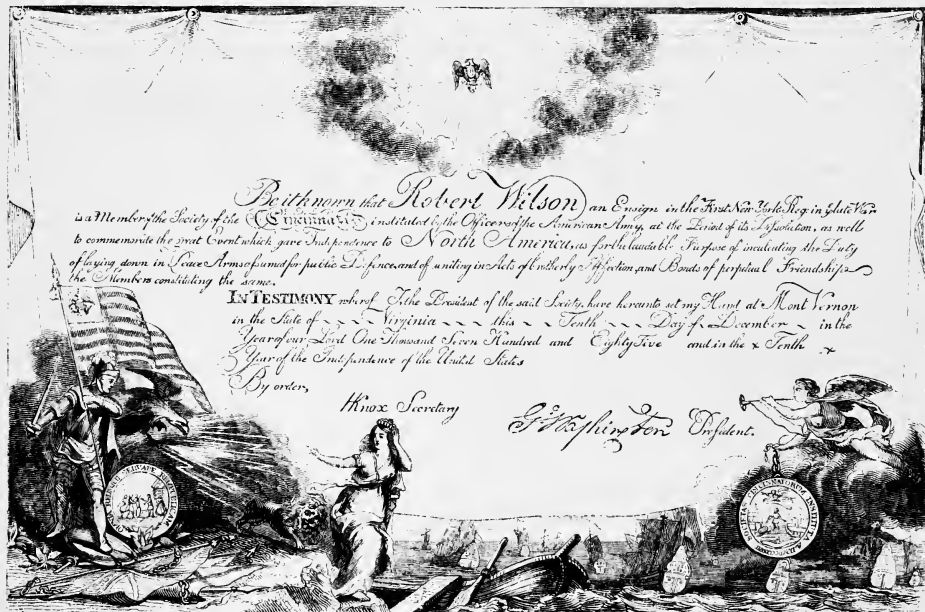 Be it known that Robert Wilson, an Ensign in the First New York Reg: in ye late War
is a Member of the Society of the Cincinnati; instituted by the Officers of the American Army, at the Period of its Dissolution, as well
to commemorate the great Event which gave Independence to North America, as for the laudable Purpose of inculcating the Duty
of laying down in Peace Arms assumed for public Defence, and of uniting in Acts of brotherly Affection, and Bonds of perpetual Friendship
the Members constituting the same.
IN TESTIMONY whereof I, the President of the said Society, have hereunto set my Hand at Mont Vernon
in the State of Virginia this Tenth Day of December in the
Year of our Lord One Thousand Seven Hundred and Eighty Five and in the Tenth
Year of the Independence of the United States
By order,
HKnox Secretary
Go Washington President.
OMNIA RELINQUIT SERVARE REMPUBLICAM
SOCIETAS CINCINNATORUM INSTITUTA